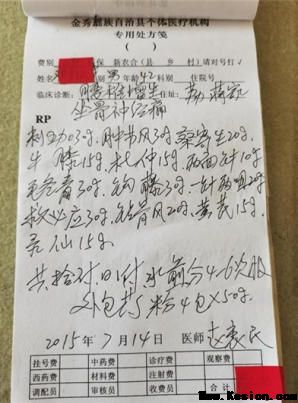 金秀瑶族自治县个体医疗机构
专用处方笺
( )
费别 保 新农合(县 乡 村)请对号打√
姓名 男 42 科别 住院号
临床诊断: 腰椎增生 住址:
坐骨神经痛
RP
30g. 肿节风30g 桑寄生20g.
牛膝15g 杜仲15g 两面针10g
30g 钩藤30g 一针两咀20g
救必应30g 钻骨风20g 黄芪15g
灵仙15g
共捡 付 日1付 水煎分4-6次服
外包药粉4包×50g.
2015年7月14日 医师
挂号费 中药费 诊疗费 观察费
西药费 材料费 注射费 合计
调配员 审核员 收费员
Www.Kesion.com